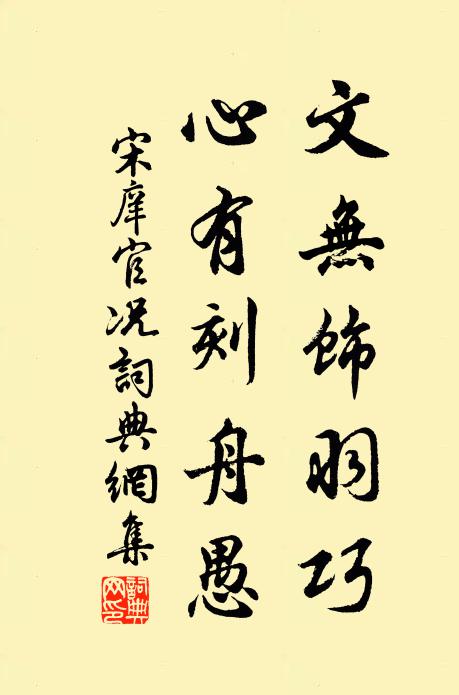 文無飾羽巧
心有刻舟愚
宋庠官況詞典網集
詞典网印